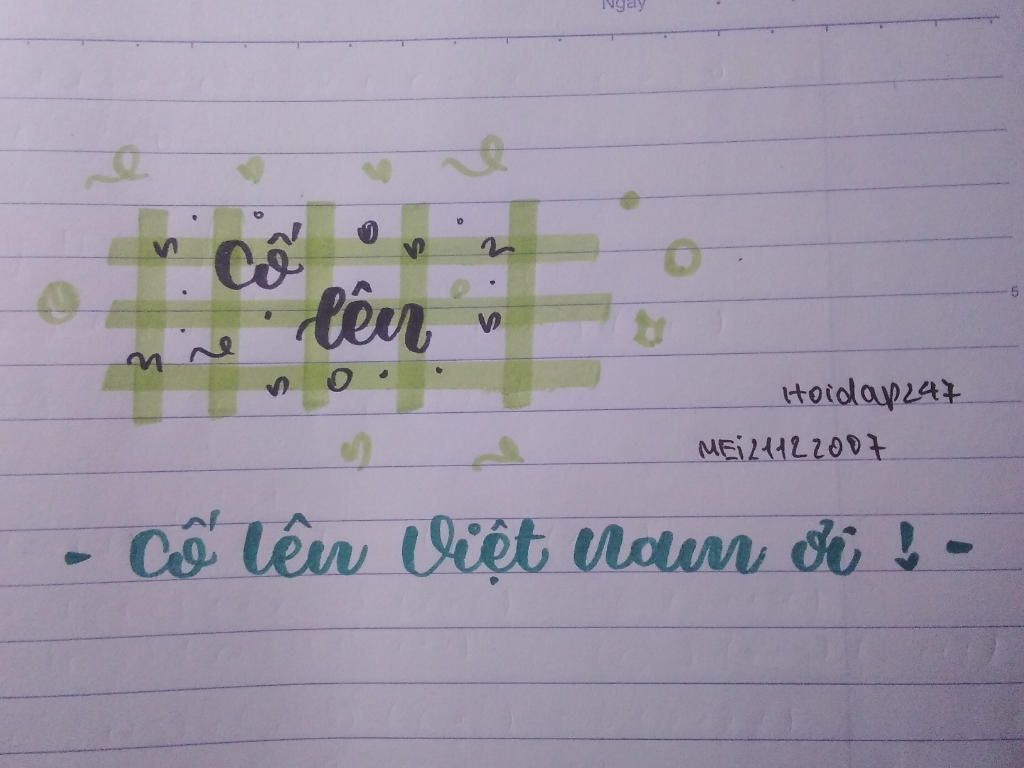 Ngày
cố
lên
5
Hoidap247
MEi21122007
- Cố lên Việt Nam ơi ! -